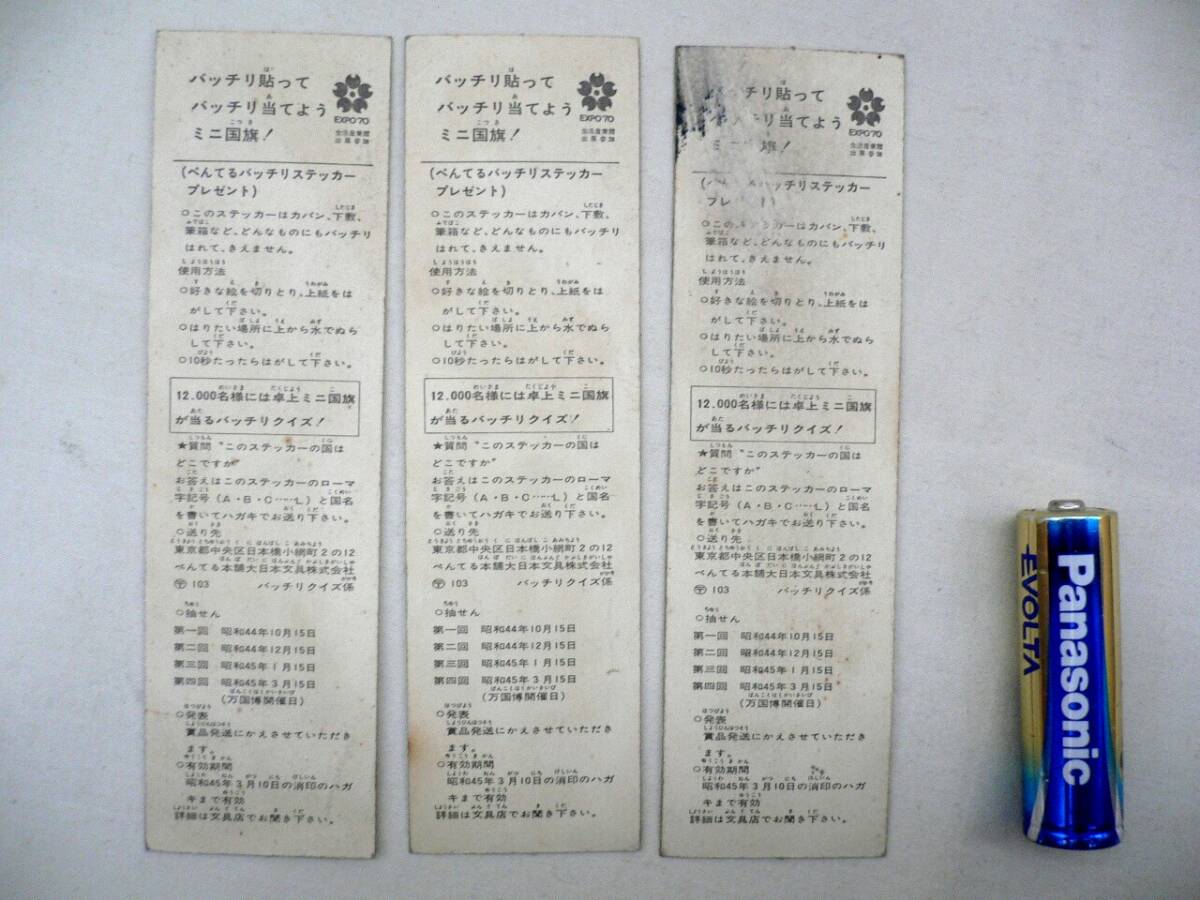 バッチリ貼って
バッチリ当てよう
ミニ国旗!
EXPO'70
生活産業館
出展参加
(ぺんてるバッチリステッカー
プレゼント)
○このステッカーはカバン、下敷、
筆箱など、どんなものにもバッチリ
はれて、きえません。
使用方法
○好きな絵を切りとり、上紙をは
がして下さい。
○はりたい場所に上から水でぬら
して下さい。
○10秒たったらはがして下さい。
12.000名様には卓上ミニ国旗
が当るバッチリクイズ!
★質問 "このステッカーの国は
どこですか"
お答えはこのステッカーのローマ
字記号(A・B・C……L)と国名
を書いてハガキでお送り下さい。
○送り先
東京都中央区日本橋小網町2の12
ぺんてる本舗大日本文具株式会社
〒103 バッチリクイズ係
○抽せん
第一回 昭和44年10月15日
第二回 昭和44年12月15日
第三回 昭和45年1月15日
第四回 昭和45年3月15日
(万国博開催日)
○発表
賞品発送にかえさせていただき
ます。
○有効期間
昭和45年3月10日の消印のハガ
キまで有効
詳細は文具店でお聞き下さい。
バッチリ貼って
バッチリ当てよう
ミニ国旗!
EXPO'70
生活産業館
出展参加
(ぺんてるバッチリステッカー
プレゼント)
○このステッカーはカバン、下敷、
筆箱など、どんなものにもバッチリ
はれて、きえません。
使用方法
○好きな絵を切りとり、上紙をは
がして下さい。
○はりたい場所に上から水でぬら
して下さい。
○10秒たったらはがして下さい。
12.000名様には卓上ミニ国旗
が当るバッチリクイズ!
★質問 "このステッカーの国は
どこですか"
お答えはこのステッカーのローマ
字記号(A・B・C……L)と国名
を書いてハガキでお送り下さい。
○送り先
東京都中央区日本橋小網町2の12
ぺんてる本舗大日本文具株式会社
〒103 バッチリクイズ係
○抽せん
第一回 昭和44年10月15日
第二回 昭和44年12月15日
第三回 昭和45年1月15日
第四回 昭和45年3月15日
(万国博開催日)
○発表
賞品発送にかえさせていただき
ます。
○有効期間
昭和45年3月10日の消印のハガ
キまで有効
詳細は文具店でお聞き下さい。
チリ貼って
チリ当てよう
ミ 旗!
EXPO'70
生活産業館
出展参加
バッチリステッカー
プレ
○このステッカーはカバン、下敷、
筆箱など、どんなものにもバッチリ
はれて、きえません。
使用方法
○好きな絵を切りとり、上紙をは
がして下さい。
○はりたい場所に上から水でぬら
して下さい。
○10秒たったらはがして下さい。
12.000名様には卓上ミニ国旗
が当るバッチリクイズ!
★質問 "このステッカーの国は
どこですか"
お答えはこのステッカーのローマ
字記号(A・B・C……L)と国名
を書いてハガキでお送り下さい。
○送り先
東京都中央区日本橋小網町2の12
ぺんてる本舗大日本文具株式会社
〒103 バッチリクイズ係
○抽せん
第一回 昭和44年10月15日
第二回 昭和44年12月15日
第三回 昭和45年1月15日
第四回 昭和45年3月15日
(万国博開催日)
○発表
賞品発送にかえさせていただき
ます。
○有効期間
昭和45年3月10日の消印のハガ
キまで有効
詳細は文具店でお聞き下さい。
Panasonic
EVOLTA